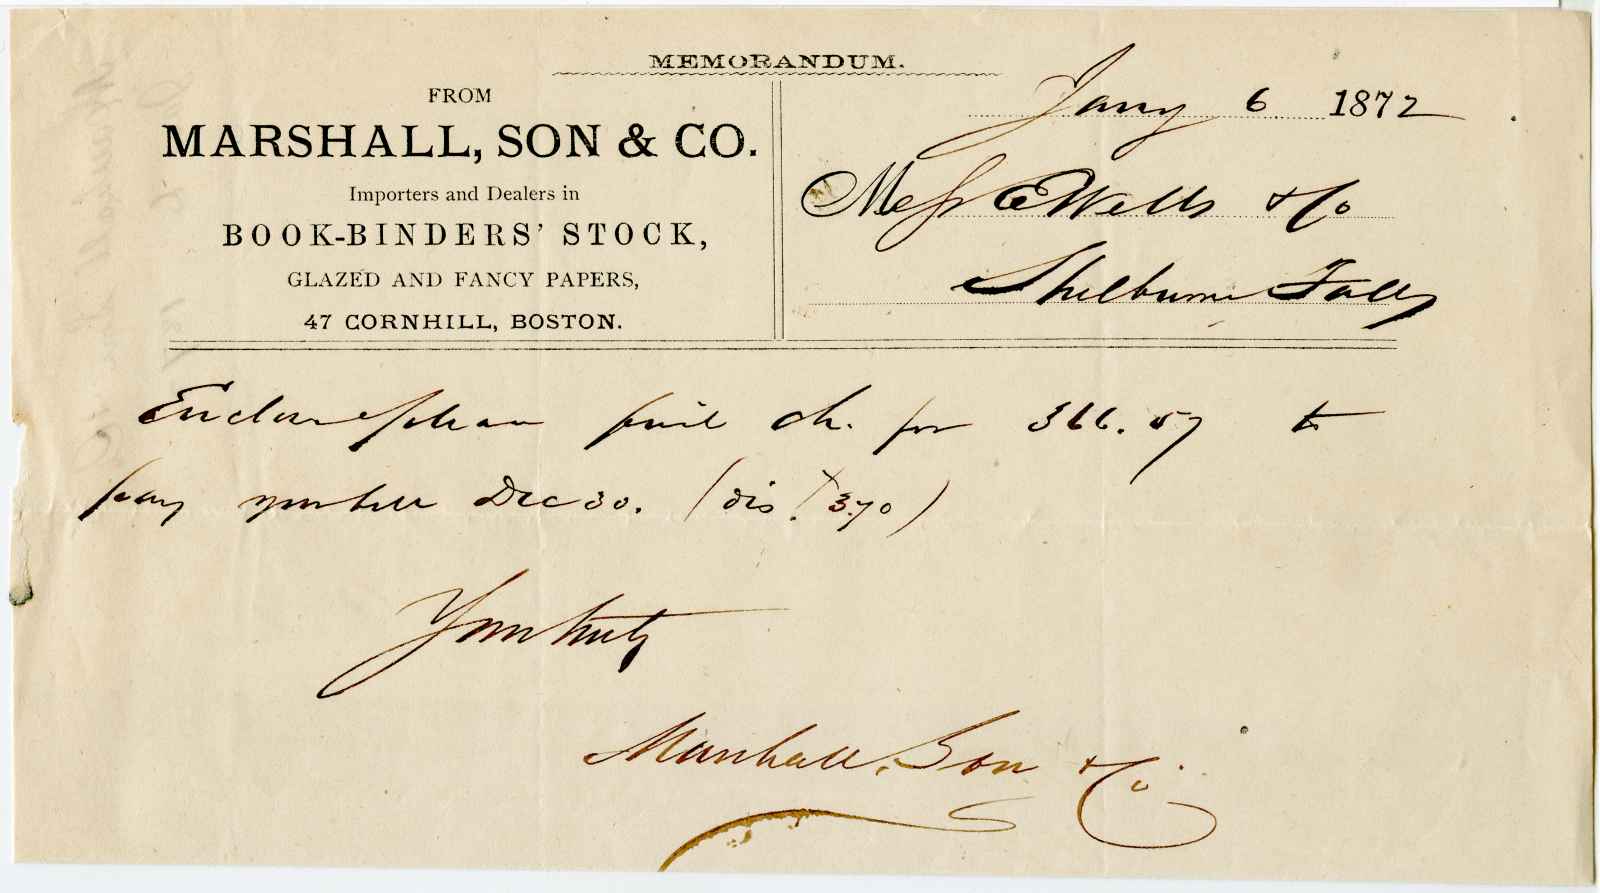 MEMORANDUM.
FROM
MARSHALL, SON & CO.
Importers and Dealers in
BOOK-BINDERS' STOCK,
GLAZED AND FANCY PAPERS,
47 CORNHILL, BOSTON.
Jany 6 1872
Mess E Wells & Co
Shelburne Falls
Enclosed please find ch. for 366.57 to
pay your bill Dec 30. (dis. 3.70)
Yours truly
Marshall, Son & Co.